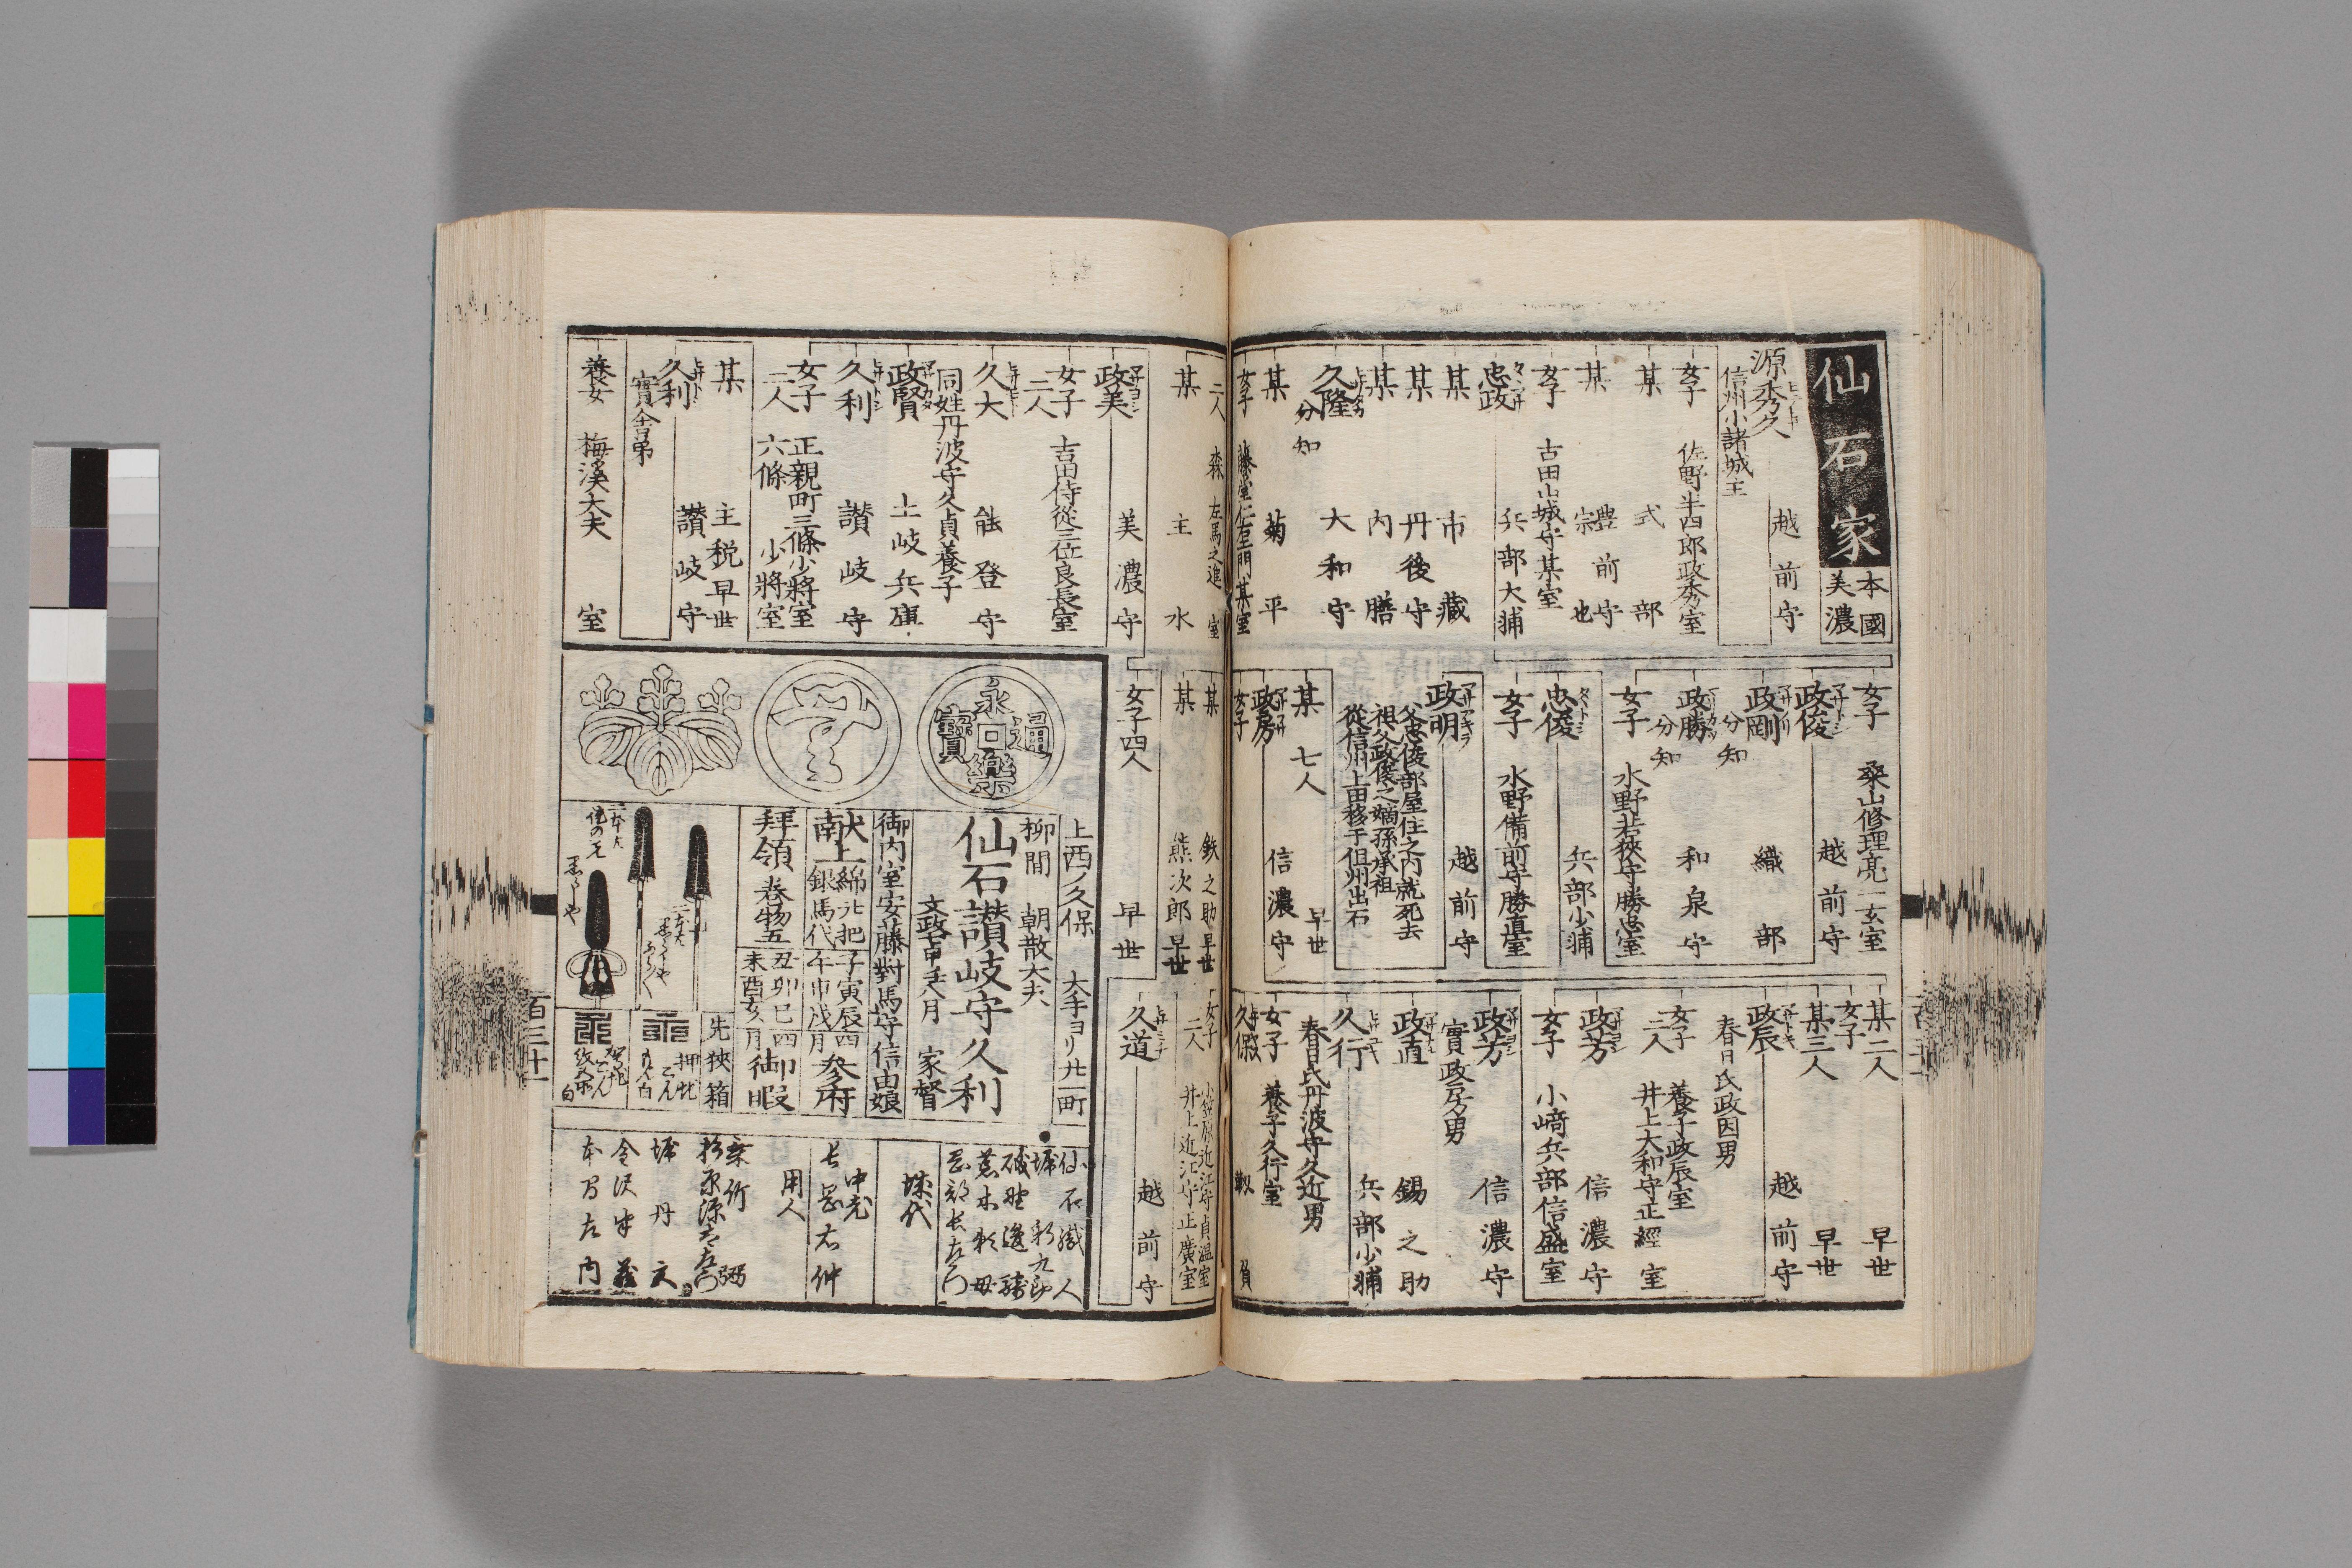 仙石家
本國
美濃
源秀久
越前守
信州小諸城主
女子 佐野半四郎政秀室
某 式部
某 豊前守
宗也
女子 古田山城守某室
忠政 兵部大輔
某 市藏
某 丹後守
某 内膳
久隆 大和守
分知
某 菊平
女子 藤堂仁右衛門某室
女子 桑山修理亮一玄室
政俊 越前守
政剛 織部
分知
政勝 和泉守
分知
女子 水野若狹守勝忠室
忠俊 兵部少輔
女子 水野備前守勝直室
政明 越前守
父忠俊部屋住之内就死去
祖父政俊之嫡孫承祖
從信州上田移于但州出石
某七人 早世
政房 信濃守
女子
某二人 早世
女子
某三人 早世
政辰 越前守
春日氏政因男
女子二人 養子政辰室
井上大和守正經室
政芳 信濃守
女子 小﨑兵部信盛室
政芳 信濃守
實政房男
政直 錫之助
久行 兵部少輔
春日氏丹波守久近男
女子 養子久行室
久照 靱負
二人 森左馬之進室
某 主水
政美 美濃守
女子二人 吉田侍從三位良長室
久大 能登守
同姓丹波守久貞養子
政賢 土岐兵庫
久利 讃岐守
女子二人 正親町三條少將室
六條少將室
某 主税 早世
久利 讃岐守
實舎弟
養女 梅溪大夫室
某 鉄之助 早世
某 熊次郎 早世
女子四人 早世
女子二人 小笠原近江守貞温室
井上近江守正廣室
久道 越前守
永樂通寳
上西ノ久保 大手ヨリ廿一町
柳間 朝散大夫
仙石讃岐守久利
文政七甲申八月 家督
御内室安藤對馬守信由娘
献上 綿廿把
銀馬代
子寅辰
午申戌
四月 参府
拜領 巻物五
丑卯巳
未酉亥
四月 御暇
先挾箱
仙石織人
堀新九郎
磯野邊
荒木
岡部長左門
城代
中老
長岡右仲
用人
堀丹文
本間左内
百三十一